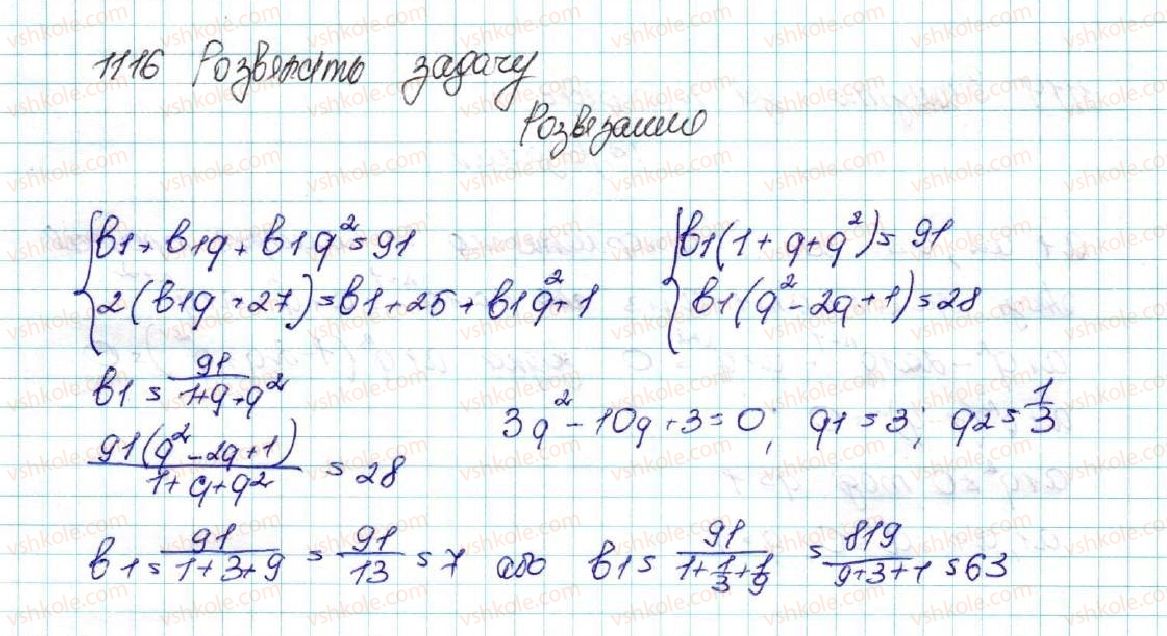 1116 Розвяжіть задачу
Розвязанно
b1 + b1q + b1q² = 91
2(b1q + 27) = b1 + 25 + b1q² + 1
b1(1 + q + q²) = 91
b1(q² - 2q + 1) = 28
b1 = 91/(1+q+q²)
91(q² - 2q + 1)/(1 + q + q²) = 28
3q² - 10q + 3 = 0; q1 = 3; q2 = 1/3
b1 = 91/(1+3+9) = 91/13 = 7 або b1 = 91/(1+1/3+1/9) = 819/(9+3+1) = 63
vshkole.com